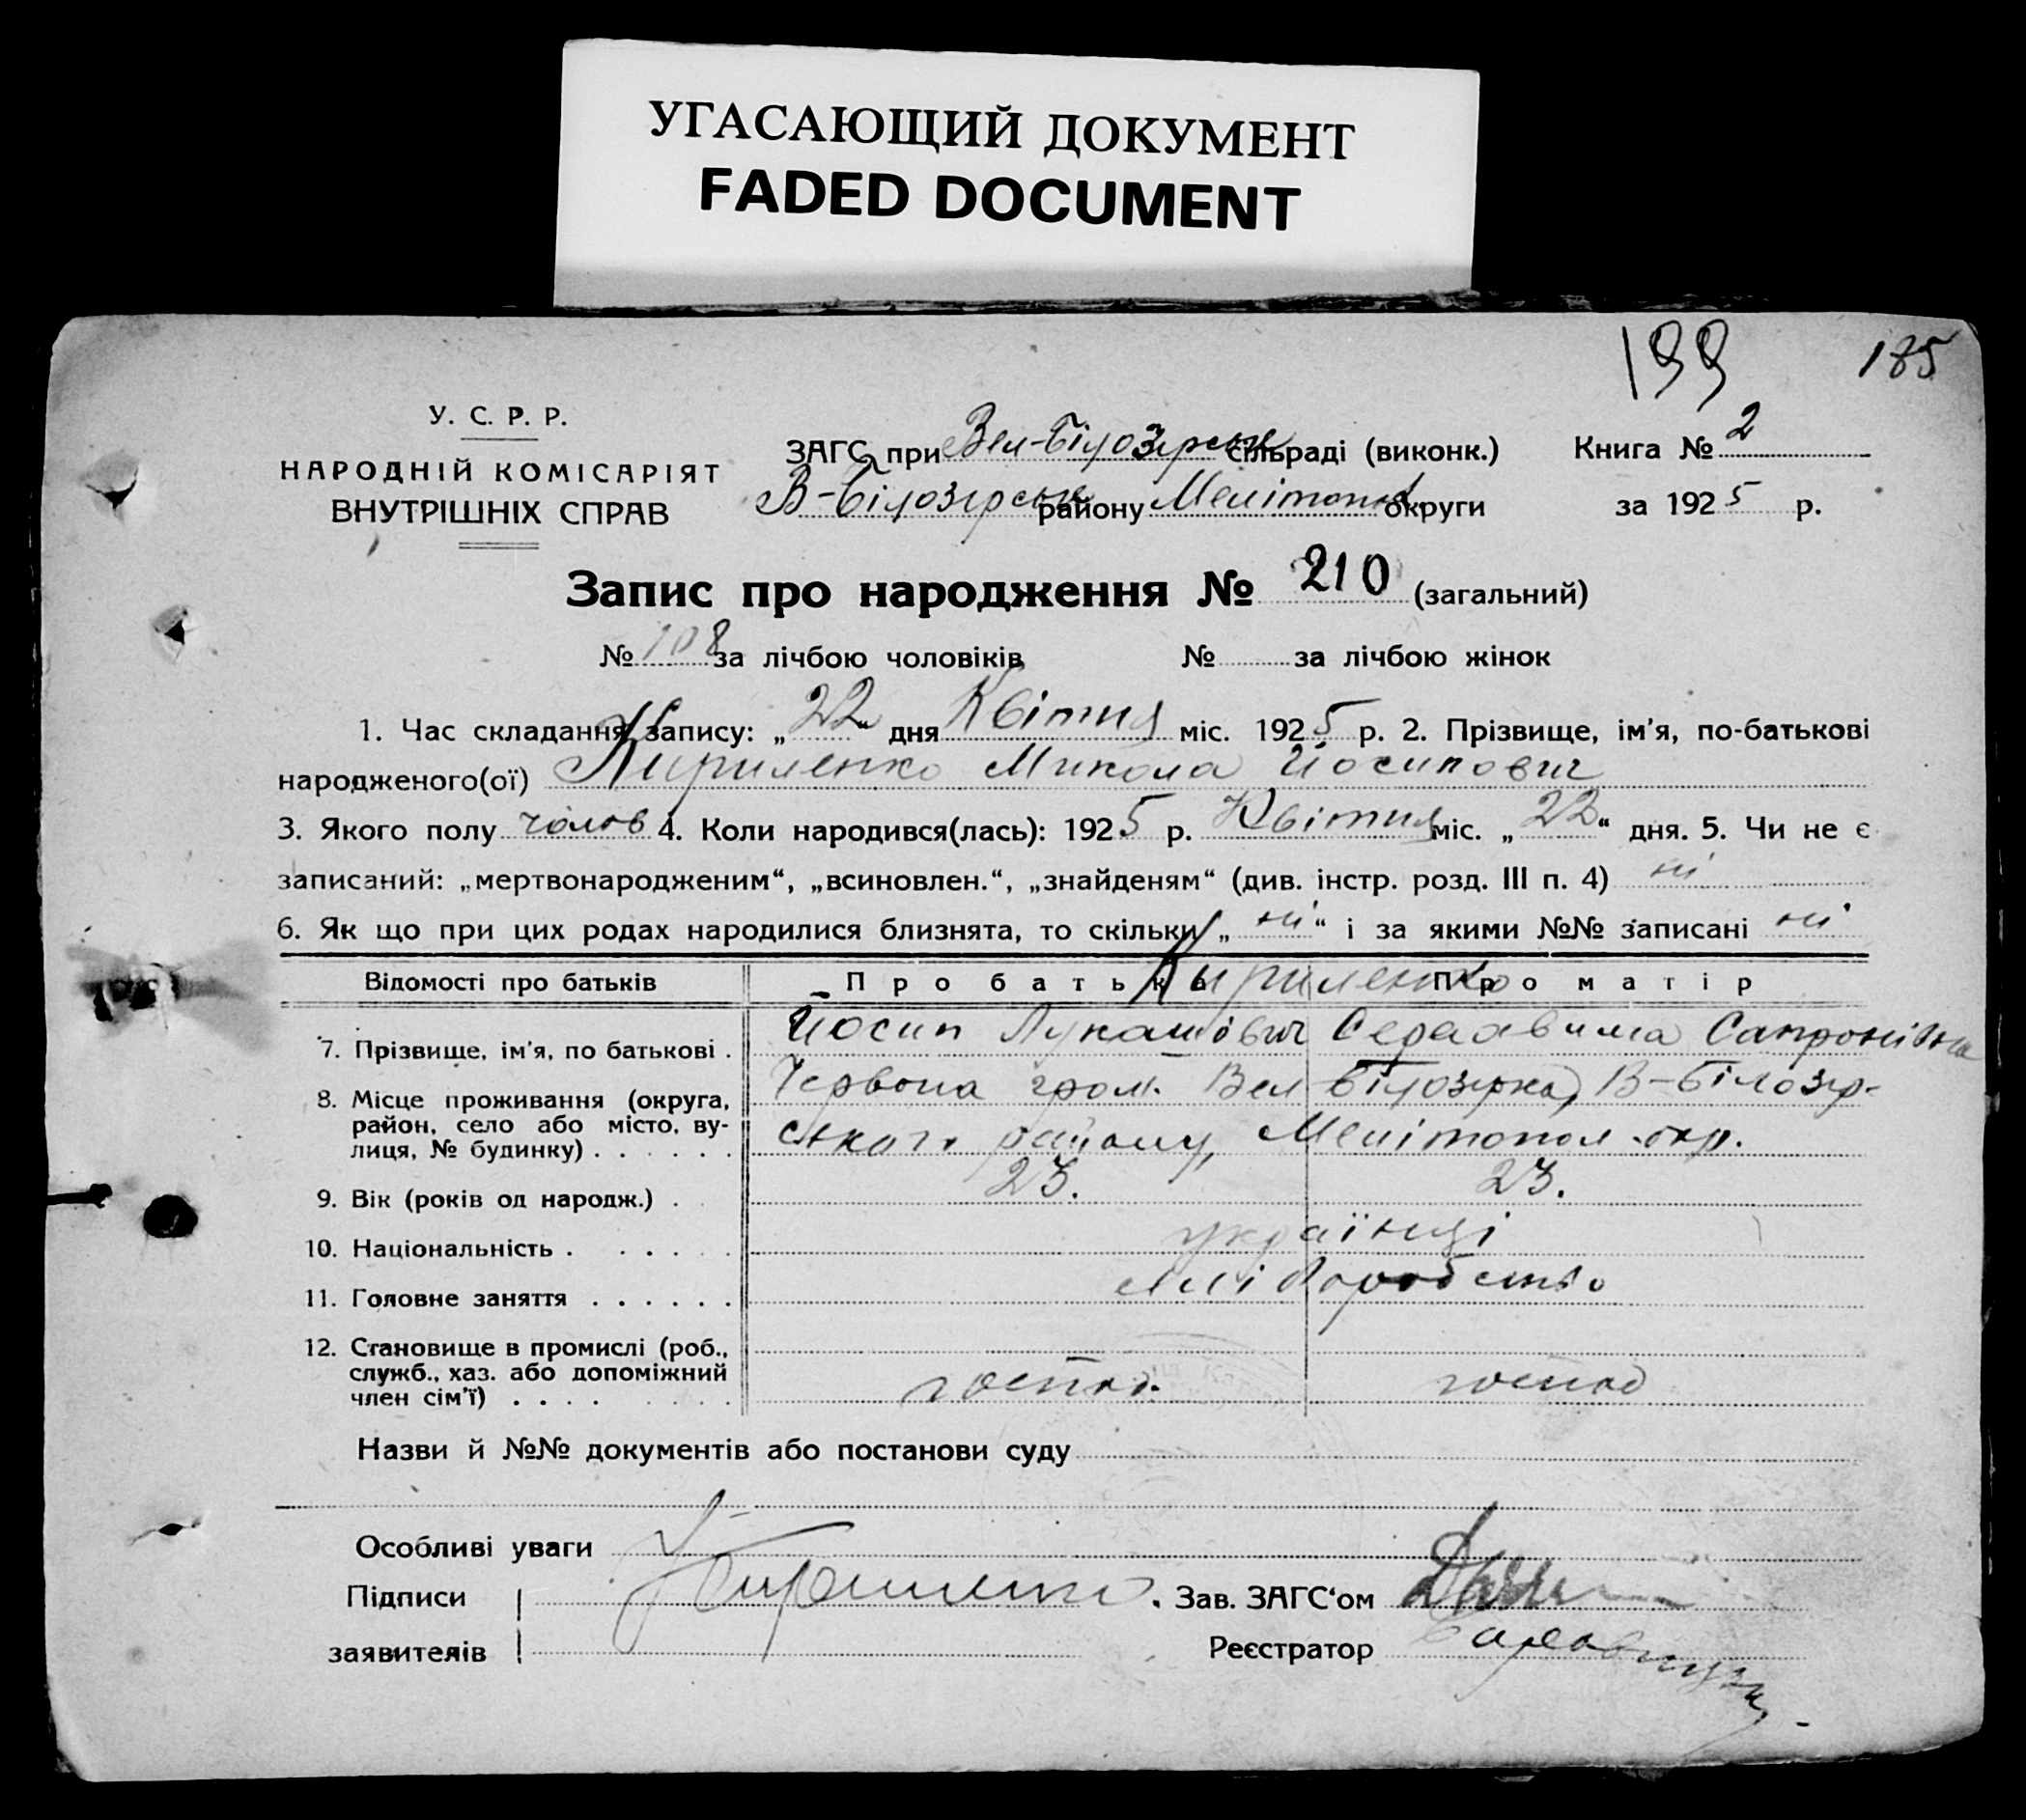 УГАСАЮЩИЙ ДОКУМЕНТ
FADED DOCUMENT
199 185
У. С. Р. Р.
НАРОДНІЙ КОМІСАРІЯТ
ВНУТРІШНІХ СПРАВ
ЗАГС при Вел-Білозірськ сільраді (виконк.) Книга № 2
В-Білозірськ району Мелітопол округи за 1925 р.
Запис про народження № 210 (загальний)
№ 108 за лічбою чоловіків № за лічбою жінок
1. Час складання запису: „22“ дня Квітня міс. 1925 р. 2. Прізвище, ім'я, по-батькові
народженого(ої) Кириленко Микола Йосипович
3. Якого полу чолов 4. Коли народився(лась): 1925 р. Квітня міс. „22“ дня. 5. Чи не є
записаний: „мертвонародженим“, „всиновлен.“, „знайденям“ (див. інстр. розд. III п. 4) ні
6. Як що при цих родах народилися близнята, то скільки „ні“ і за якими №№ записані ні
Відомості про батьків Про батька Про матір
Кириленко
7. Прізвище, ім'я, по батькові . Йосип Лукашович Сапронівна
8. Місце проживання (округа, Червона гром. Вел Білозірка, В-Білозір-
район, село або місто, ву-
лиця, № будинку) . . . . . . ського району, Мелітопол. окр.
9. Вік (років од народж.) . 23. 23.
10. Національність . . . . . українці
11. Головне заняття . . . . . . хліборобство
12. Становище в промислі (роб.,
служб., хаз. або допоміжний
член сім'ї) . . . . господ. господ
Назви й №№ документів або постанови суду
Особливі уваги
Підписи Кириленко. Зав. ЗАГС'ом
заявителів Реєстратор